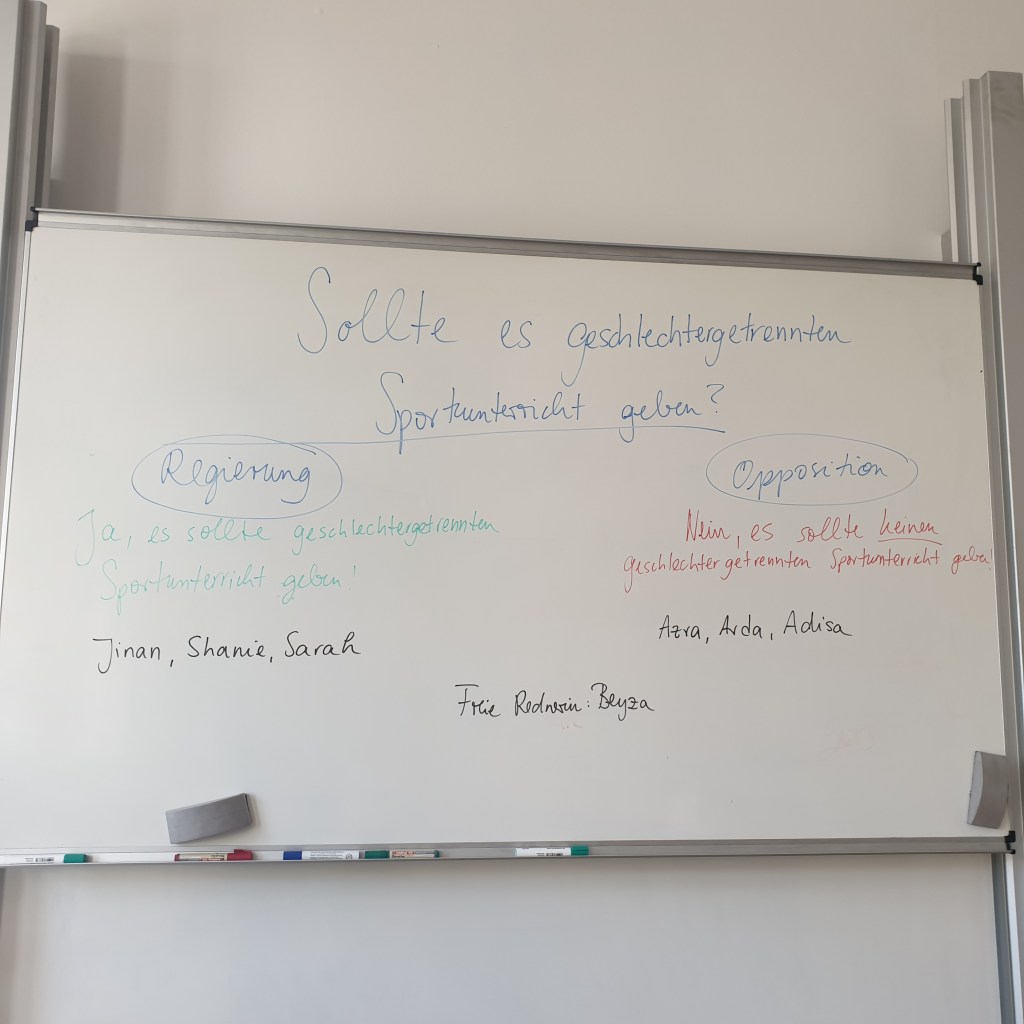 Sollte es geschlechtergetrennten
Sportunterricht geben?
Regierung
Ja, es sollte geschlechtergetrennten
Sportunterricht geben!
Jinan, Shanie, Sarah
Opposition
Nein, es sollte keinen
geschlechtergetrennten Sportunterricht geben!
Azra, Arda, Adisa
Freie Rednerin: Beyza